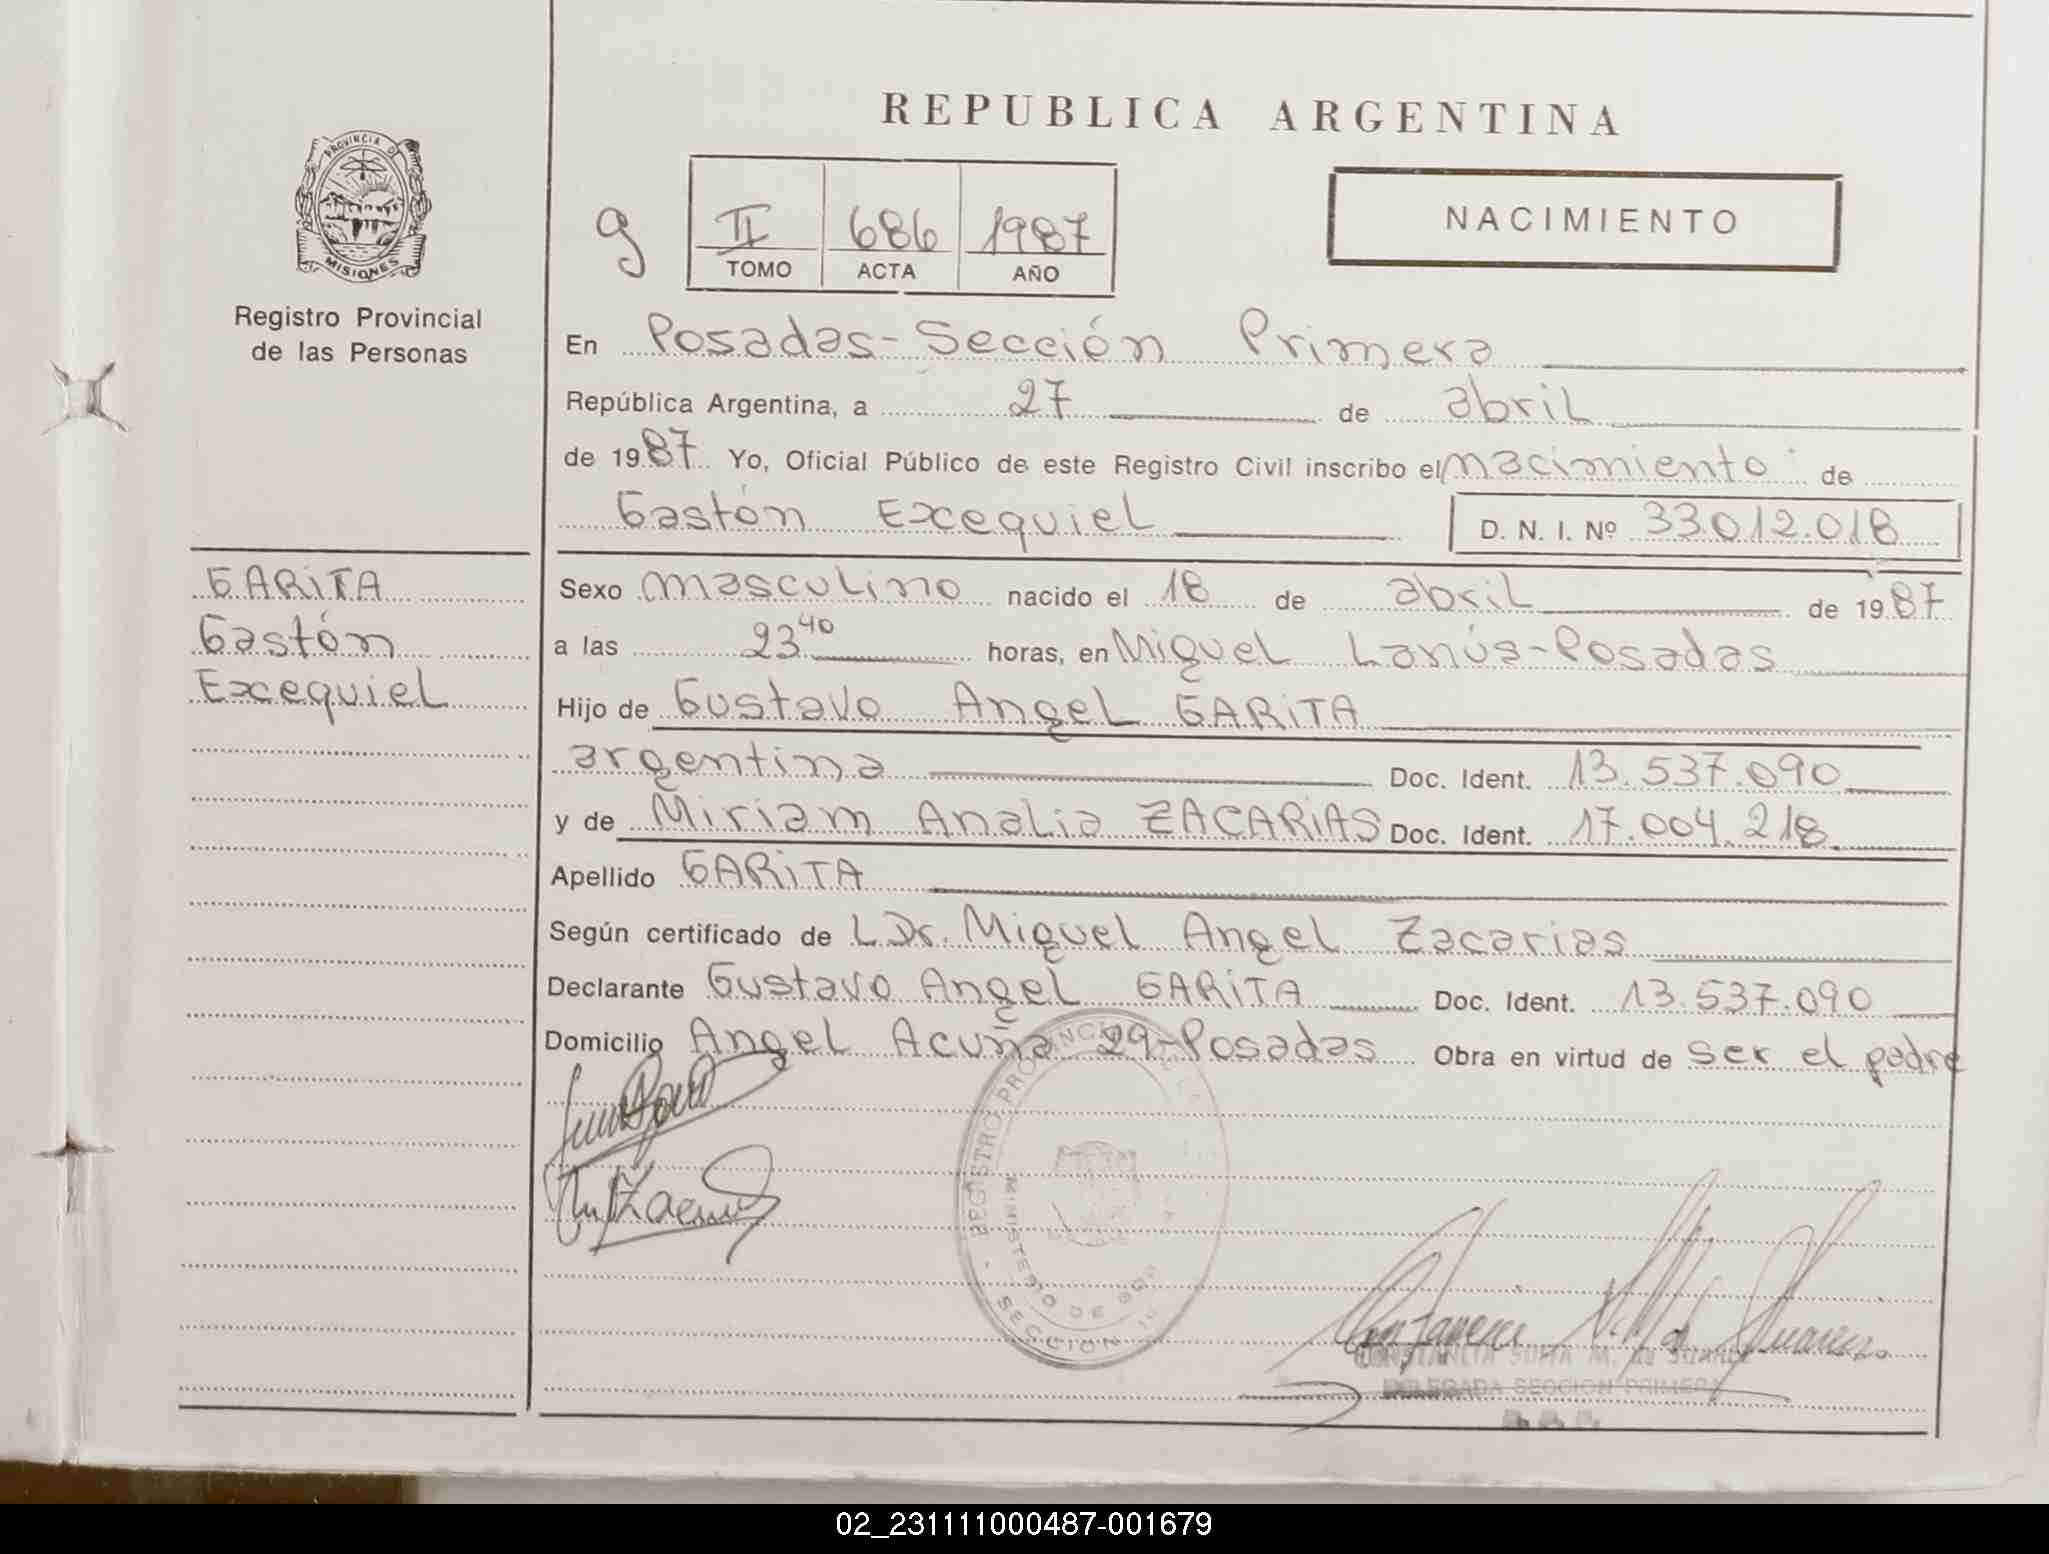 REPUBLICA ARGENTINA
PROVINCIA DE
MISIONES
Registro Provincial
de las Personas
g
II 686 1987
TOMO ACTA AÑO
NACIMIENTO
En Posadas-Sección Primera
República Argentina, a 27 de abril
de 1987 Yo, Oficial Público de este Registro Civil inscribo el nacimiento de
Gastón Excequiel D. N. I. Nº 33.012.018
GARITA
Gastón
Excequiel
Sexo masculino nacido el 18 de abril de 1987
a las 23 40 horas, en Miguel Lanús-Posadas
Hijo de Gustavo Angel GARITA
argentina Doc. Ident. 13.537.090
y de Miriam Analia ZACARIAS Doc. Ident. 17.004.218
Apellido GARITA
Según certificado de L Dr. Miguel Angel Zacarias
Declarante Gustavo Angel GARITA Doc. Ident. 13.537.090
Domicilio Angel Acuña 29-Posadas Obra en virtud de ser el padre
REGISTRO PROVINCIAL DE
MINISTERIO DE
SECCION
CONSTANCIA M. de
DELEGADA SECCION PRIMERA
02_231111000487-001679